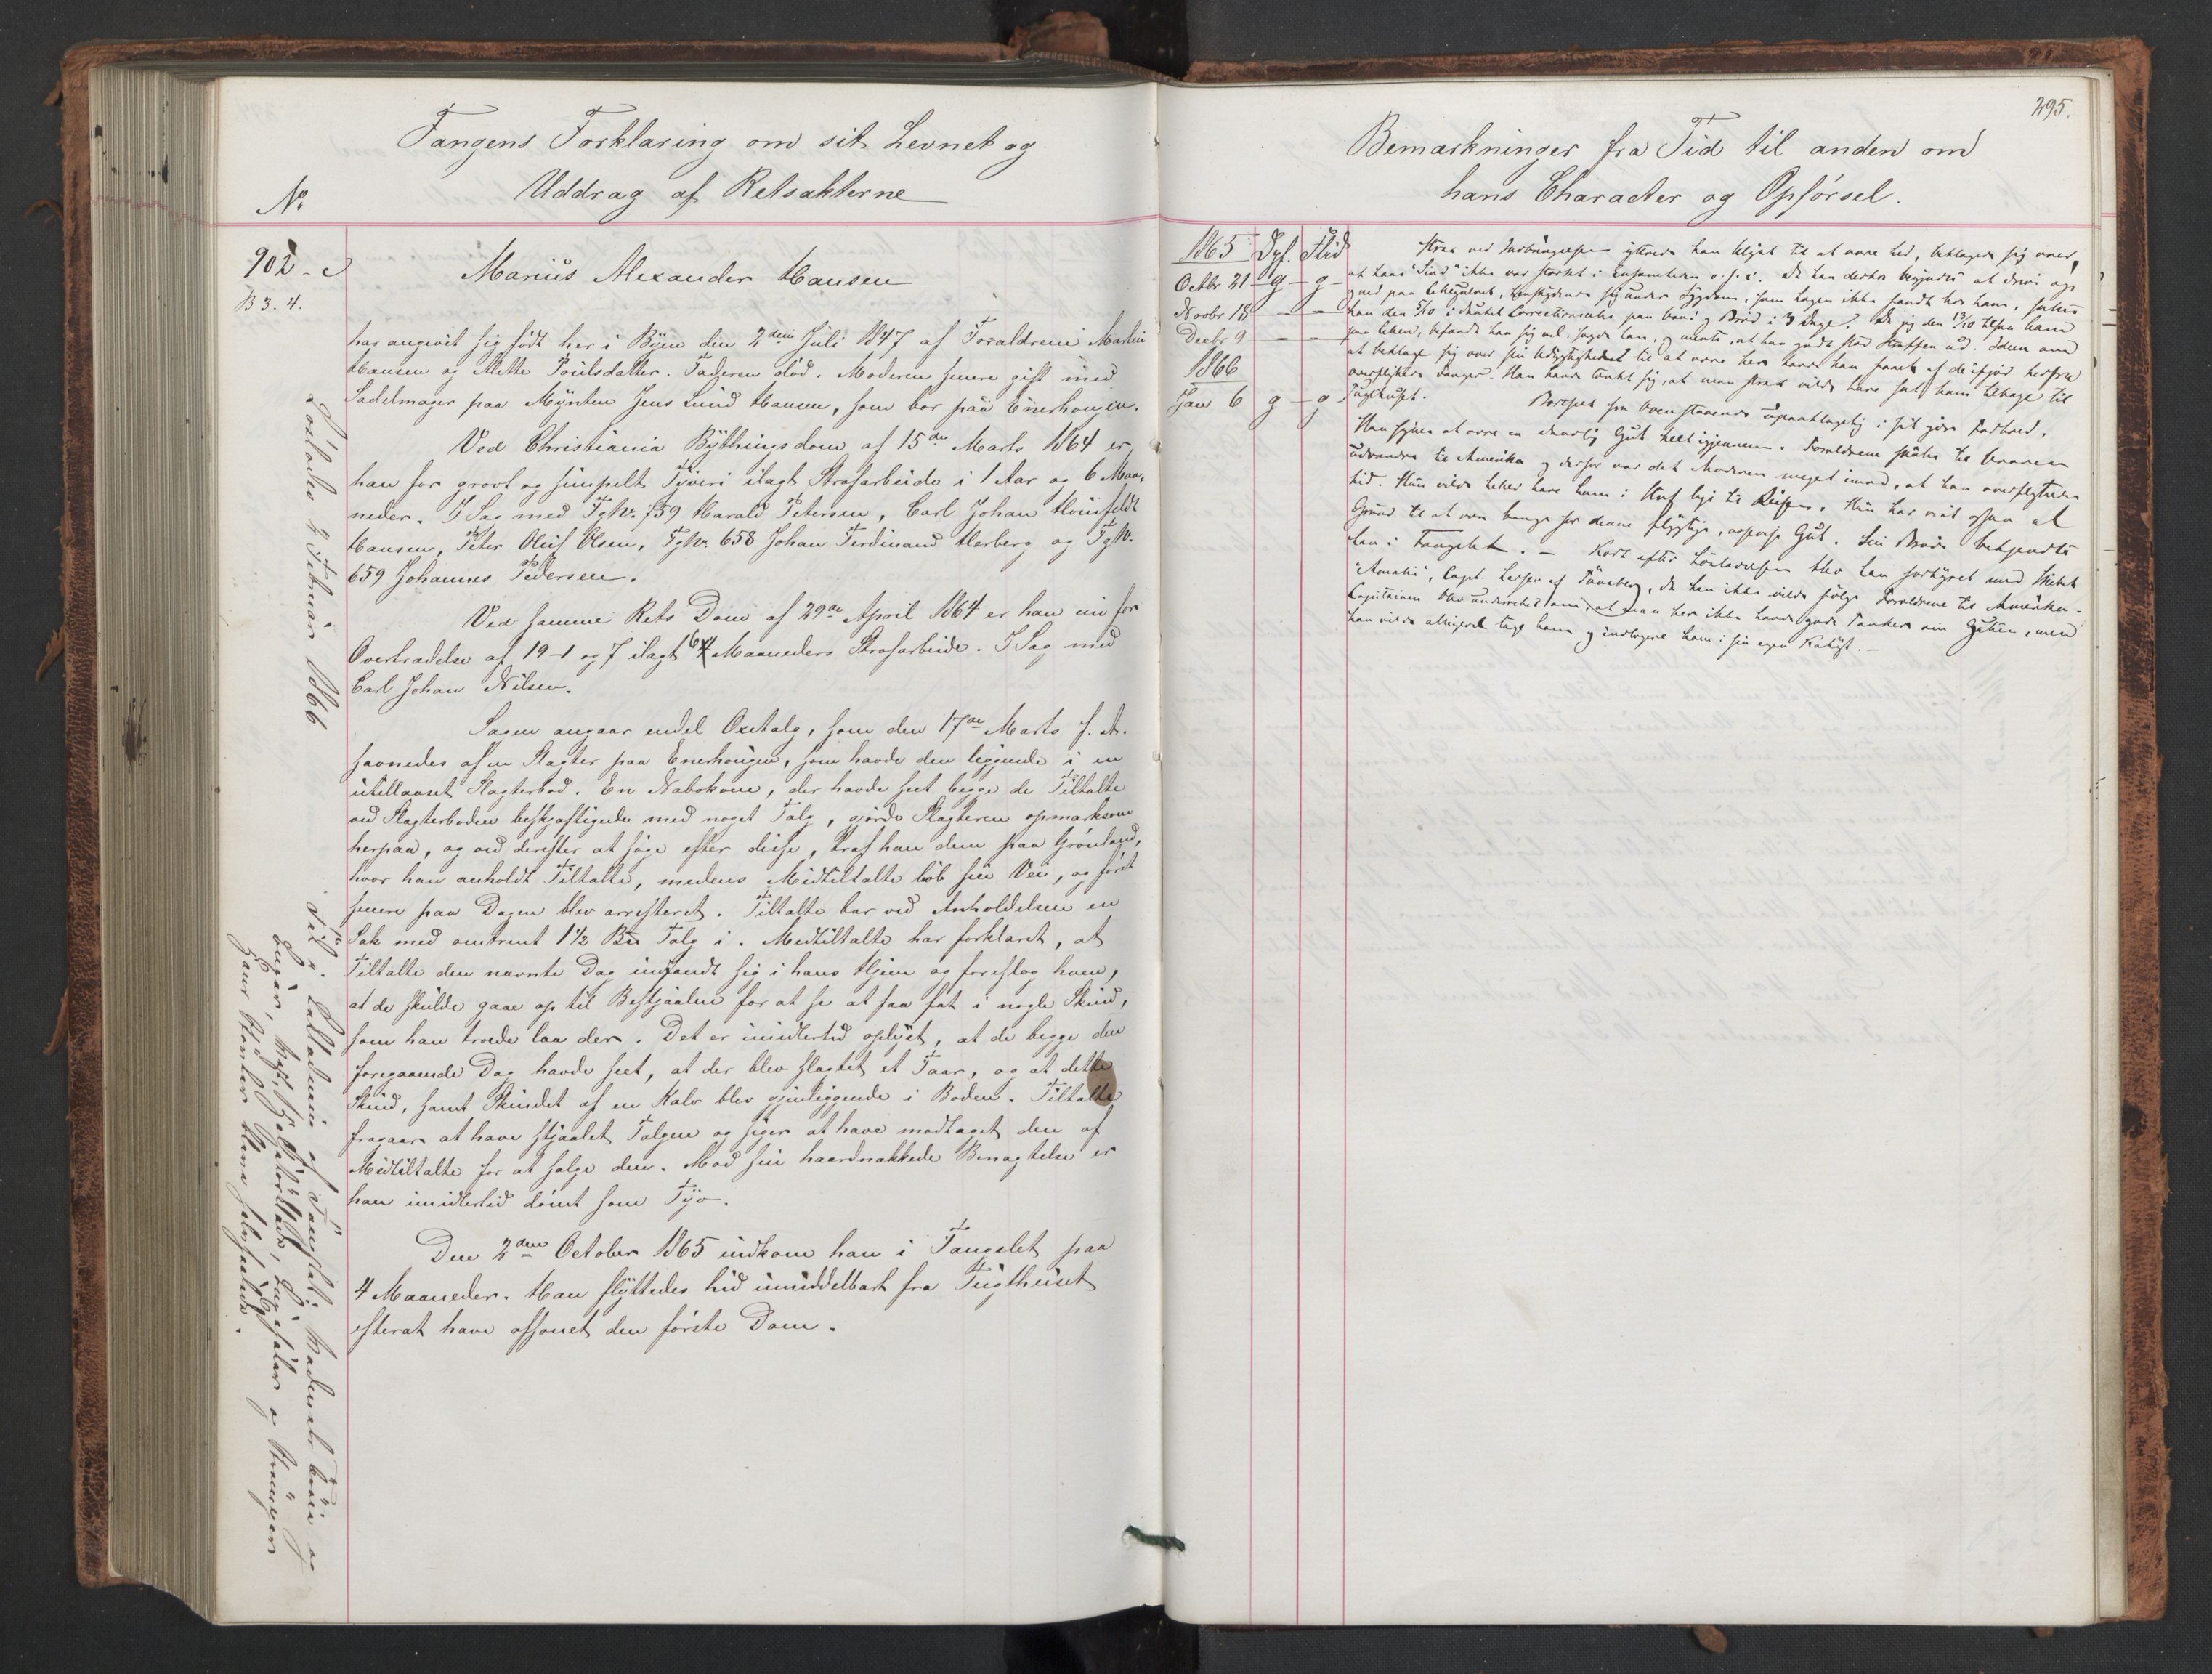 Fangens Forklaring om sit Levnet og
Uddrag af Retsakterne
No.
902 - c
B 3. 4.
Marius Alexander Hansen
har angivet sig født her i Byen den 2den Juli 1847 af Forældrene Martin
Hansen og Mette Poulsdatter. Faderen død. Moderen senere gift med
Sadelmager paa Mynten Jens Lund Hansen, som bor paa Enerhougen.
Ved Christiania Bythingsdom af 15de Marts 1864 er
han for grovt og simpelt Tyveri ilagt Strafarbeide i 1 Aar og 6 Maa-
neder. I Sag med Fg No. 759 Harald Petersen, Carl Johan
Hansen, Peter Oluf Olsen, Fg No. 658 Johan Ferdinand Herberg og Fg No.
659 Johannes Pedersen.
Ved samme Rets Dom af 29de April 1864 er han nu for
Overtrædelse af 19-1 og 7 ilagt 4 Maaneders Strafarbeide. I Sag med
Carl Johan Nilsen.
Sagen angaar endel Oxetalg, som den 17de Marts f. A.
savnedes af en Slagter paa Enerhougen, som havde den liggende i en
utillaaset Slagterbod. En Nabokone, der havde seet begge de Tiltalte
ved Slagterboden beskjæftigede med noget Talg, gjorde Slagteren opmærksom
herpaa, og ved derefter at søge efter disse, traf han dem paa Grønland,
hvor han anholdt Tiltalte, medens Medtiltalte løb sin Vei, og først
senere paa Dagen blev arresteret. Tiltalte bar ved Anholdelsen en
Sæk med omtrent 1 1/2 Bpd Talg i. Medtiltalte har forklaret, at
Tiltalte den nævnte Dag indfandt sig i hans Hjem og foreslog ham,
at de skulde gaae op til Bestjaalne for at se at faa fat i nogle Skind,
som han troede laa der. Det er imidlertid oplyst, at de begge den
foregaaende Dag havde seet, at der blev slagtet et Faar, og at dette
Skind, samt Skindet af en Kalv blev gjenliggende i Boden. Tiltalte
fragaar at have stjaalet Talgen og siger at have modtaget den af
Medtiltalte for at sælge den. Mod sin haardnakkede Benægtelse er
han imidlertid dømt som Tyv.
Den 2den October 1865 indkom han i Fængslet paa
4 Maaneder. Han flyttedes hid umiddelbart fra Tugthuset
efterat have afsonet den første Dom.
Løslodes 2 Februar 1866
295.
Bemærkninger fra Tid til anden om
hans Character og Opførsel.
1865 Opf. Flid
Octbr 21 - g - g -
Novbr 18 - -
Decbr 9 - -
1866
Jan 6 g - g
Strax ved Indbringelsen yttrede han Ulyst til at være her, beklagede sig over,
at hans "Sind" ikke var stærkt i Eensomheden o. s. v. Da han derhos begyndte at drive og
gned paa Arbeidet, undskyldende sig under Sygdom, som Lægen ikke fandt hos ham, sattes
han den 5/10 i mørk Correctionscelle paa Vand og Brød i 3 Dage. Da jeg den 13/10 tilsaa ham
paa Cellen, befandt han sig vel, sagde han, og mente, at han godt stod Straffen ud. Idem om
Tugthuset. Bortseet fra Ovenstaaende upaaklagelig i sit gjøre Indhold.
udvandre til Amerika og derfor var det Moderen meget imod, at han overflyttedes
hid. Hun vilde heller have ham i
Grund til at være bange for denne flygtige, Gut. Sin Brøde bekjendte
han i Fængslet. - Kort efter Løsladelsen blev han forhyret med Skibet
"Amalie", Capt. Larsen af Tønsberg, da han ikke vilde følge Forældrene til Amerika.
Capitainen blev underrettet om, at man her ikke havde gode Tanker om Gutten, men
han vilde alligevel tage ham og indlogere ham i sin egen Kahyt. -